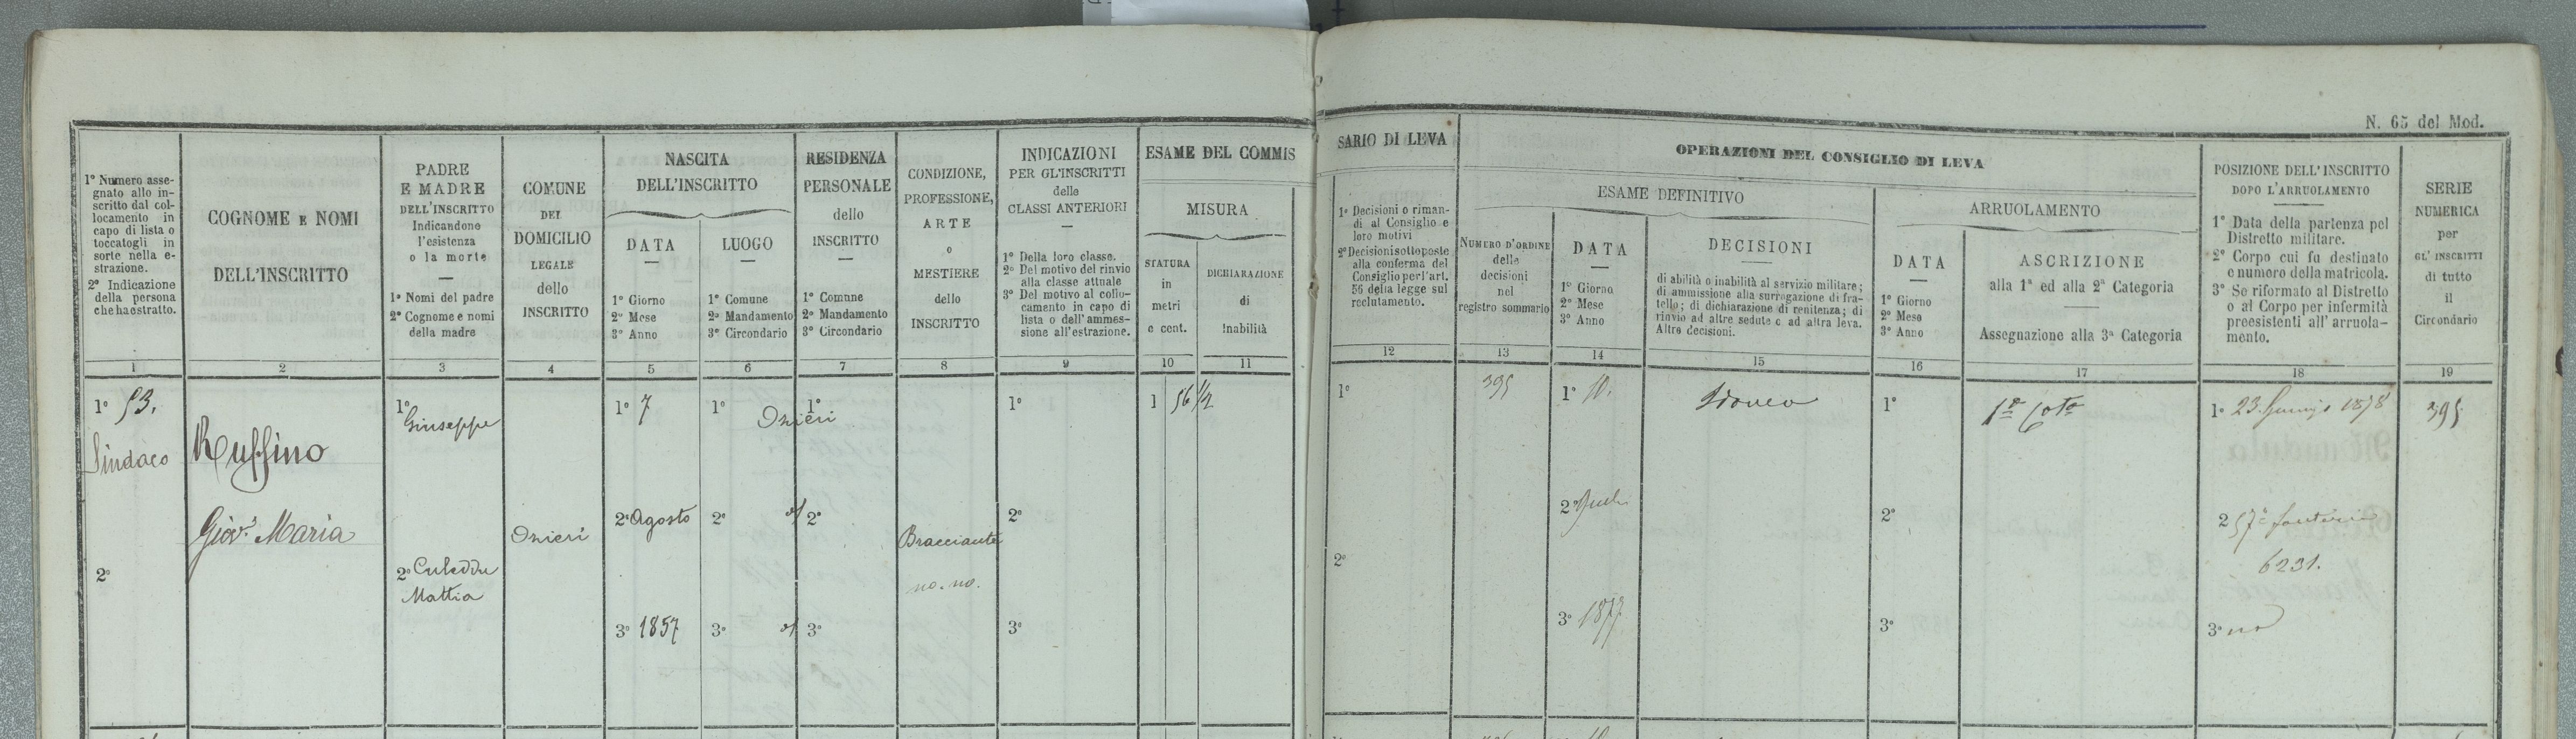 N. 65 del Mod.
1º Numero asse-
gnato allo in-
scritto dal col-
locamento in
capo di lista o
toccatogli in
sorte nella e-
strazione.
2º Indicazione
della persona
che ha estratto.
COGNOME E NOMI
DELL'INSCRITTO
PADRE
E MADRE
DELL'INSCRITTO
Indicandone
l'esistenza
o la morte
1º Nomi del padre
2º Cognome e nomi
della madre
COMUNE
DEL
DOMICILIO
LEGALE
dello
INSCRITTO
NASCITA
DELL'INSCRITTO
DATA
1º Giorno
2º Mese
3º Anno
LUOGO
1º Comune
2º Mandamento
3º Circondario
RESIDENZA
PERSONALE
dello
INSCRITTO
1º Comune
2º Mandamento
3º Circondario
CONDIZIONE,
PROFESSIONE,
ARTE
o
MESTIERE
dello
INSCRITTO
INDICAZIONI
PER GL'INSCRITTI
delle
CLASSI ANTERIORI
1º Della loro classe.
2º Del motivo del rinvio
alla classe attuale
3º Del motivo al collo-
camento in capo di
lista o dell'ammes-
sione all'estrazione.
ESAME DEL COMMIS
SARIO DI LEVA
MISURA
STATURA
in
metri
e cent.
DICHIARAZIONE
di
inabilità
1º Decisioni o riman-
di al Consiglio e
loro motivi
2º Decisioni sottoposte
alla conferma del
Consiglio per l'art.
56 della legge sul
reclutamento.
OPERAZIONI DEL CONSIGLIO DI LEVA
ESAME DEFINITIVO
NUMERO D'ORDINE
delle
decisioni
nel
registro sommario
DATA
1º Giorno
2º Mese
3º Anno
DECISIONI
di abilità o inabilità al servizio militare;
di ammissione alla surrogazione di fra-
tello; di dichiarazione di renitenza; di
rinvio ad altre sedute o ad altra leva.
Altre decisioni.
ARRUOLAMENTO
DATA
1º Giorno
2º Mese
3º Anno
ASCRIZIONE
alla 1ª ed alla 2ª Categoria
Assegnazione alla 3ª Categoria
POSIZIONE DELL'INSCRITTO
DOPO L'ARRUOLAMENTO
1º Data della partenza pel
Distretto militare.
2º Corpo cui fu destinato
e numero della matricola.
3º Se riformato al Distretto
o al Corpo per infermità
preesistenti all'arruola-
mento.
SERIE
NUMERICA
per
GL'INSCRITTI
di tutto
il
Circondario
1 2 3 4 5 6 7 8 9 10 11 12 13 14 15 16 17 18 19
1º 53.
Sindaco
2º
Ruffino
Giov.ⁱ Maria
1º Giuseppe
2º Culeddu
Mattia
Ozieri
1º 7
2º Agosto
3º 1857
1º Ozieri
2º
3º
1º
2º
3º
Bracciante
no. no.
1º
2º
3º
1 56 1/2
1º
2º
395
1º 10.
2º
3º 1877
Idoneo
1º
2º
3º
1ª
1º 23 1878
2 57º fanteria
6231.
3º no
395